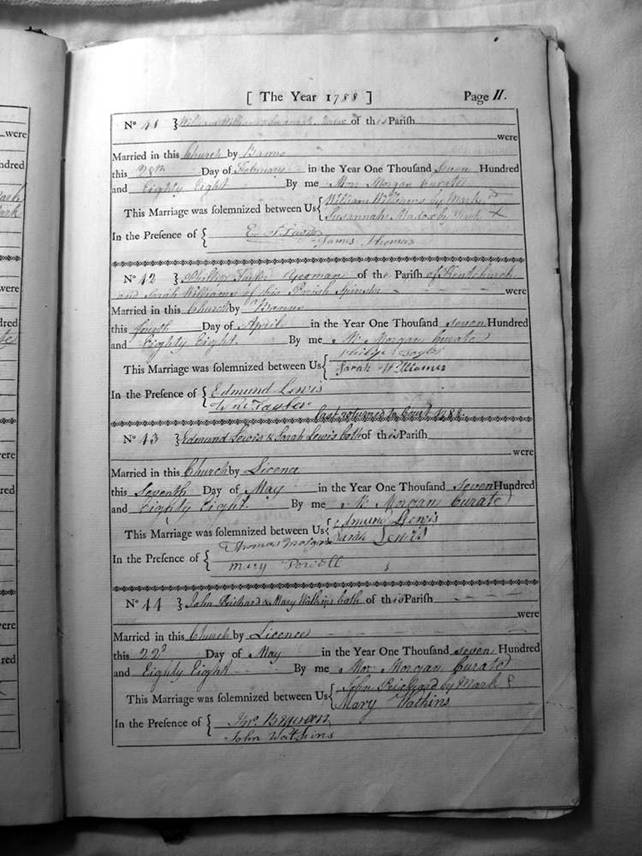 [ The Year 1788 ] Page 11.
No 41 } William Williams & of this Parish
were
Married in this Church by Banns
this 28th Day of February in the Year One Thousand seven Hundred
and Eighty Eight By me Mor Morgan Curate
This Marriage was solemnized between Us { William Williams by Mark
Susannah Madox by Mark X
In the Presence of {
James Thomas
No 42 } Phillip Taylor Yeoman of the Parish of Kentchurch
and Sarah Williams of this Parish Spinster were
Married in this Church by Banns
this fourth Day of April in the Year One Thousand seven Hundred
and Eighty Eight By me Mr Morgan Curate
This Marriage was solemnized between Us { Phillip Taylor
Sarah Williams
In the Presence of { Edmund Lewis
Taylor
last returned to Court 1788
No 43 } Edmund Lewis & Sarah Lewis both of this Parish
were
Married in this Church by Licence
this Seventh Day of May in the Year One Thousand seven Hundred
and Eighty Eight By me Mr Morgan Curate
This Marriage was solemnized between Us { Edmund Lewis
Sarah Lewis
In the Presence of { Thomas Morgan
Mary Powell
No 44 } John Prichard & Mary Watkins both of this Parish
were
Married in this Church by Licence
this 22d Day of May in the Year One Thousand seven Hundred
and Eighty Eight By me Mor Morgan Curate
This Marriage was solemnized between Us { John Prichard by Mark
Mary Watkins
In the Presence of {
John Watkins